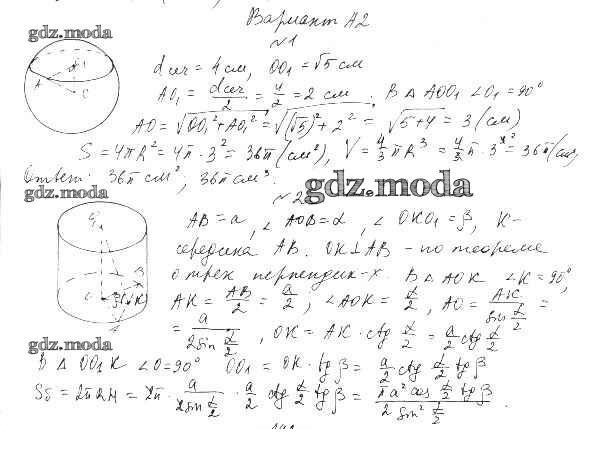 Вариант А2
gdz.moda
№1
dсеч = 4 см, OO₁ = √5 см
AO₁ = dсеч/2 = 4/2 = 2 см. В Δ AOO₁ ∠O₁ = 90°
AO = √(OO₁² + AO₁²) = √((√5)² + 2²) = √(5+4) = 3 (см)
S = 4πR² = 4π · 3² = 36π (см²), V = 4/3 πR³ = 4/3 π · 3³ = 36π (см³)
Ответ: 36π см²; 36π см³.
gdz.moda
gdz.moda
№2
AB = a, ∠AOB = α, ∠OKO₁ = β, K-
середина AB. OK⊥AB - по теореме
о трех перпендик-х. В Δ AOK ∠K = 90°,
AK = AB/2 = a/2, ∠AOK = α/2, AO = AK/sin α/2 =
= a/(2sin α/2), OK = AK · ctg α/2 = a/2 ctg α/2
gdz.moda
В Δ OO₁K ∠O = 90° OO₁ = OK · tg β = a/2 ctg α/2 tg β
Sб = 2πRH = 2π · a/(2sin α/2) · a/2 ctg α/2 tg β = πa² cos α/2 tg β/(2 sin² α/2).